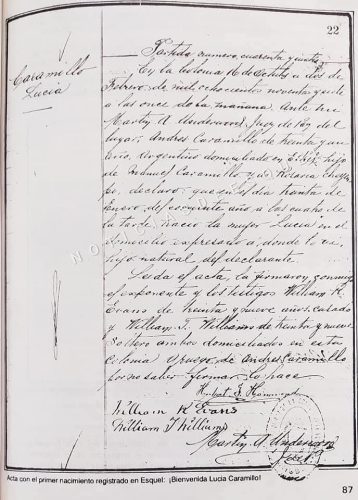 22
Caramillo
Lucia
Partida numero cuarenta y cuatro
En la Colonia 16 de Octubre a dos de
Febrero de mil ochocientos noventa y siete
a las once de la mañana. Ante mi
Martin A. Underwood, Juez de Paz del
lugar; Andres Caramillo de treinta y un
años, Argentino domiciliado en hijo
de Manuel Caramillo y de Rosario
declaró: que en el dia treinta de
Enero del corriente año a las cuatro de
la tarde nacio la mujer "Lucia" en el
domicilio expresado, donde
hijo natural del declarante.
Leida el acta, la firmaron conmigo
el exponente y los testigos William K.
Evans de treinta y nueve años, casado
y William T. Williams de treinta y nueve
soltero ambos domiciliados en esta
Colonia. A ruego de Andres Caramillo
por no saber firmar lo hace
William K Evans
William T Williams
Martin A. Underwood
Juez
Acta con el primer nacimiento registrado en Esquel: ¡Bienvenida Lucia Caramillo!
87